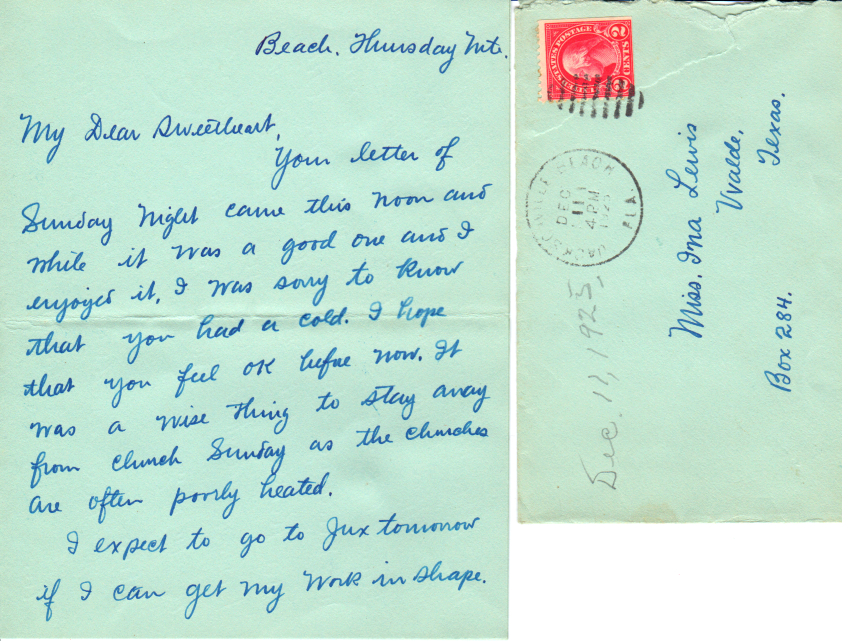 Beach. Thursday Nite.
My Dear Sweetheart,
Your letter of
Sunday Night came this Noon and
while it was a good one and I
enjoyed it, I was sorry to know
that you had a cold. I hope
that you feel OK before now. It
was a wise thing to stay away
from church Sunday as the churches
are often poorly heated.
I expect to go to Jax tomorrow
if I can get my work in shape.
UNITED STATES POSTAGE
2 CENTS 2
JACKSONVILLE BEACH
DEC
11
4 PM
1925
Miss. Ina Lewis
Uvalde,
Texas.
Box 284.
Dec. 11, 1925,